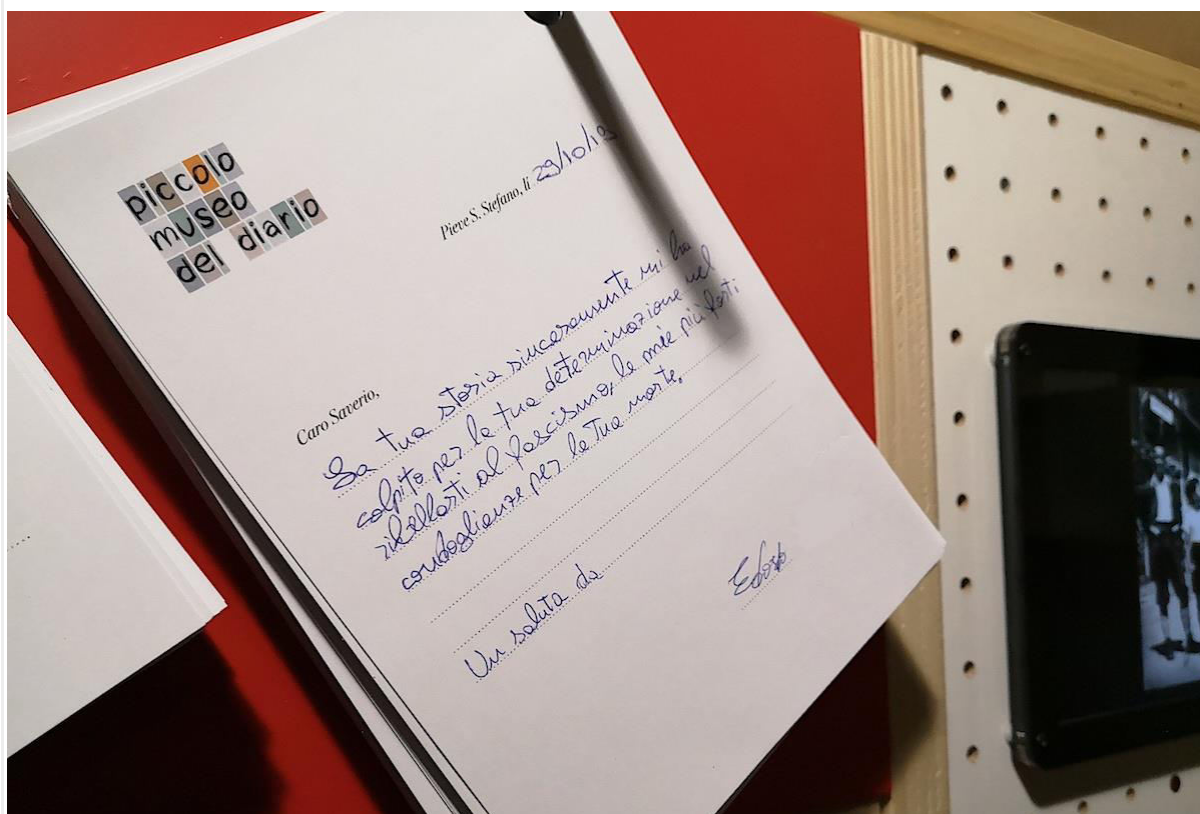 piccolo
museo
del diario
Pieve S. Stefano, lì 29/10/19
Caro Saverio,
La tua storia sinceramente mi ha
colpito per la tua determinazione nel
ribellarti al fascismo, le mie più forti
condoglianze per la tua morte.
Un saluto da